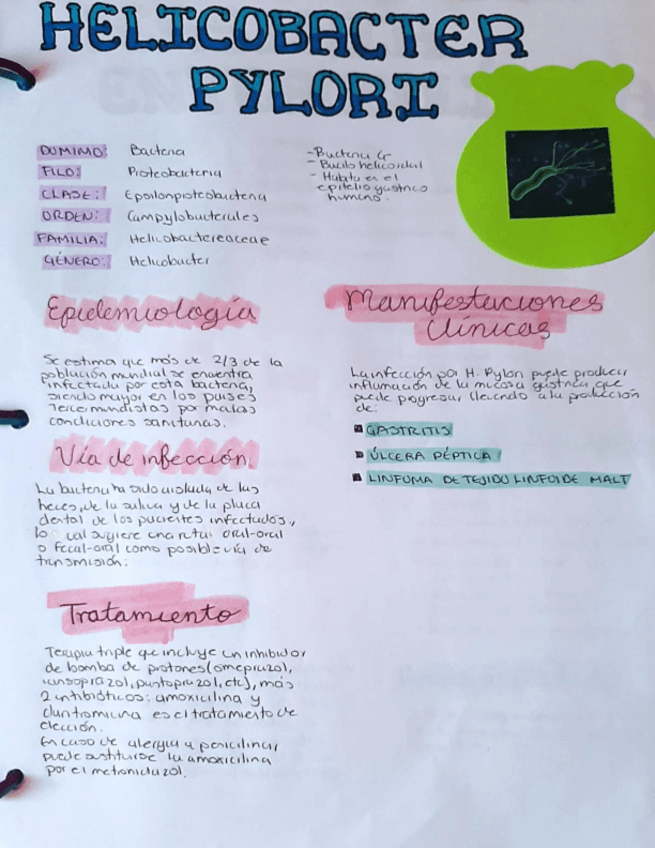 HELICOBACTER
PYLORI
DOMINIO: Bacteria
FILO: Proteobacteria
CLASE: Epsilonproteobacteria
ORDEN: Campylobacterales
FAMILIA: Helicobactereaceae
GÉNERO: Helicobacter
- Bacteria G-
- Bacilo helicoidal
- Habita en el
epitelio gástrico
humano.
Epidemiología
Se estima que más de 2/3 de la
población mundial se encuentra
infectada por esta bacteria,
siendo mayor en los países
tercermundistas por malas
condiciones sanitarias.
Vía de infección
La bacteria ha sido aislada de las
heces, de la saliva y de la placa
dental de los pacientes infectados,
lo cual sugiere una ruta oral-oral
o fecal-oral como posible vía de
transmisión.
Tratamiento
Terapia triple que incluye un inhibidor
de bomba de protones (omeprazol,
lansoprazol, pantoprazol, etc), más
2 antibióticos: amoxicilina y
claritromicina es el tratamiento de
elección.
En caso de alergia a penicilinas
puede sustituirse la amoxicilina
por el metronidazol.
Manifestaciones
Clínicas
La infección por H. Pylori puede producir
inflamación de la mucosa gástrica que
puede progresar llevando a la producción
de:
GASTRITIS
ÚLCERA PÉPTICA
LINFOMA DE TEJIDO LINFOIDE MALT